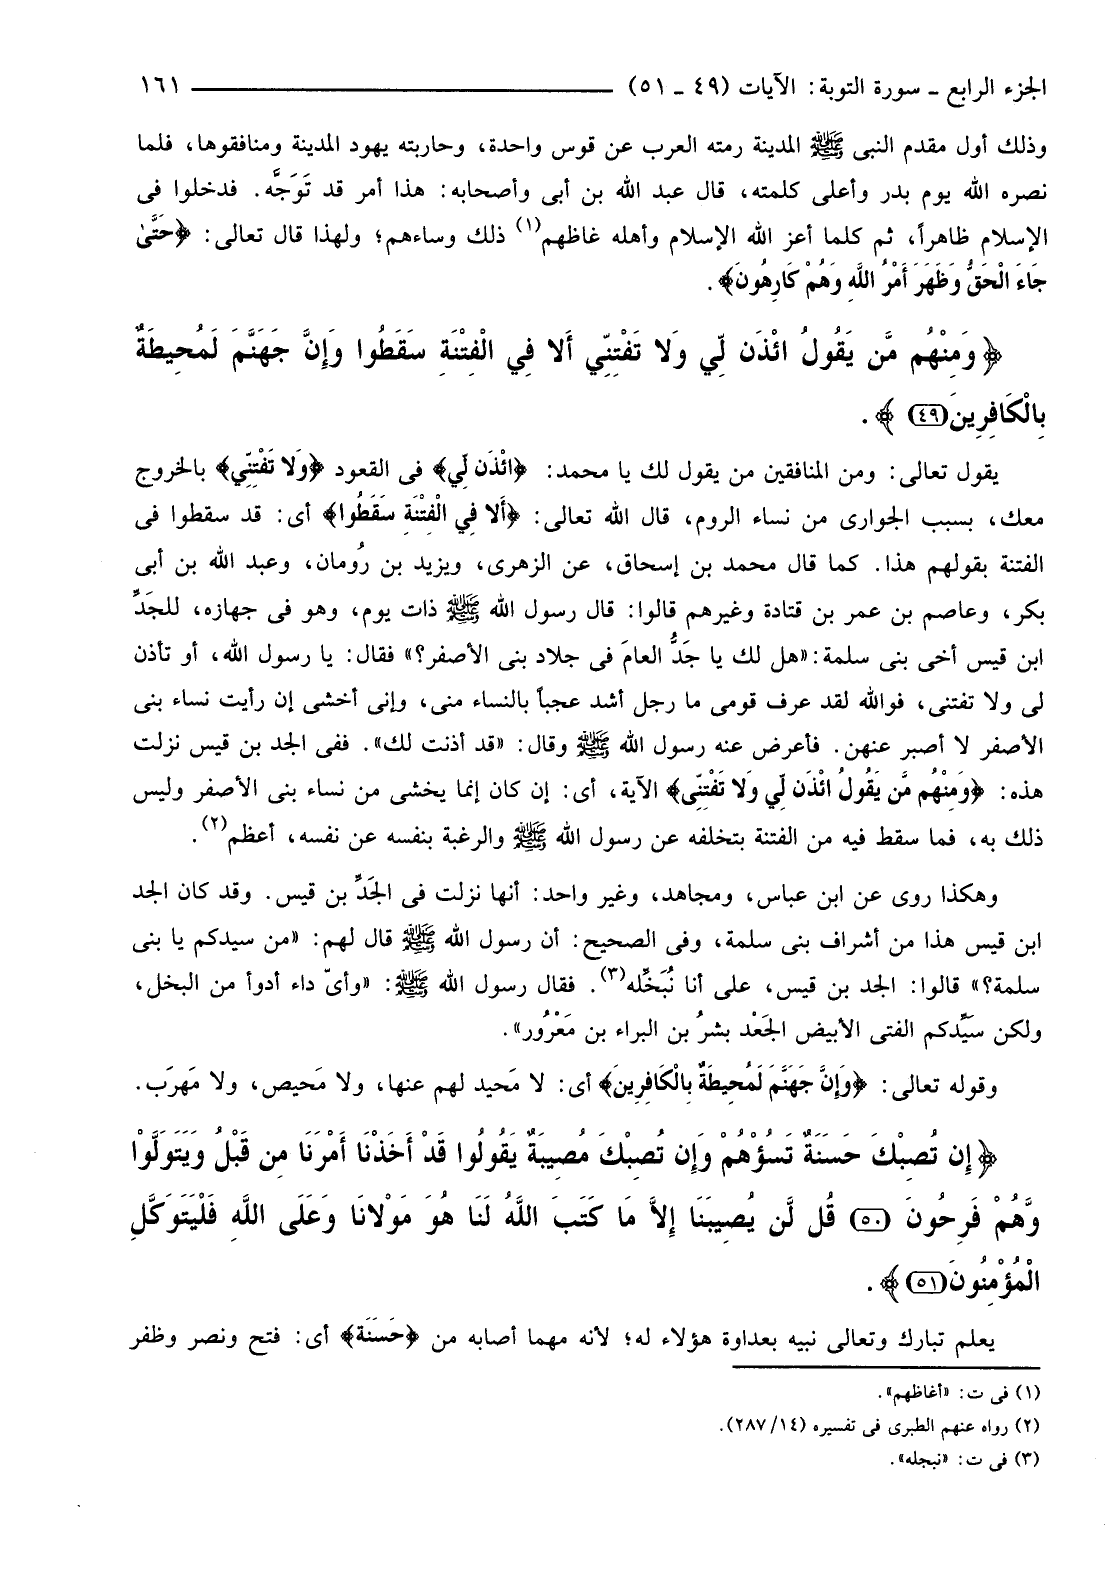 الجزء الرابع ـ سورة التوبة: الآيات (٤٩ ـ ٥١) ١٦١
وذلك أول مقدم النبى ﷺ المدينة رمته العرب عن قوس واحدة، وحاربته يهود المدينة ومنافقوها، فلما
نصره الله يوم بدر وأعلى كلمته، قال عبد الله بن أبى وأصحابه: هذا أمر قد تَوَجَّه. فدخلوا فى
الإسلام ظاهراً، ثم كلما أعز الله الإسلام وأهله غاظهم(١) ذلك وساءهم؛ ولهذا قال تعالى: ﴿حَتَّىٰ
جَاءَ الْحَقُّ وَظَهَرَ أَمْرُ اللَّهِ وَهُمْ كَارِهُونَ﴾.
﴿وَمِنْهُم مَّن يَقُولُ ائْذَن لِّي وَلا تَفْتِنِّي أَلا فِي الْفِتْنَةِ سَقَطُوا وَإِنَّ جَهَنَّمَ لَمُحِيطَةٌ
بِالْكَافِرِينَ (٤٩)﴾.
يقول تعالى: ومن المنافقين من يقول لك يا محمد: ﴿ائْذَن لِّي﴾ فى القعود ﴿وَلا تَفْتِنِّي﴾ بالخروج
معك، بسبب الجوارى من نساء الروم، قال الله تعالى: ﴿أَلا فِي الْفِتْنَةِ سَقَطُوا﴾ أى: قد سقطوا فى
الفتنة بقولهم هذا. كما قال محمد بن إسحاق، عن الزهرى، ويزيد بن رُومان، وعبد الله بن أبى
بكر، وعاصم بن عمر بن قتادة وغيرهم قالوا: قال رسول الله ﷺ ذات يوم، وهو فى جهازه، للجَدِّ
ابن قيس أخى بنى سلمة: «هل لك يا جَدُّ العامَ فى جلاد بنى الأصفر؟» فقال: يا رسول الله، أو تأذن
لى ولا تفتنى، فوالله لقد عرف قومى ما رجل أشد عجباً بالنساء منى، وإنى أخشى إن رأيت نساء بنى
الأصفر لا أصبر عنهن. فأعرض عنه رسول الله ﷺ وقال: «قد أذنت لك». ففى الجد بن قيس نزلت
هذه: ﴿وَمِنْهُم مَّن يَقُولُ ائْذَن لِّي وَلا تَفْتِنِّي﴾ الآية، أى: إن كان إنما يخشى من نساء بنى الأصفر وليس
ذلك به، فما سقط فيه من الفتنة بتخلفه عن رسول الله ﷺ والرغبة بنفسه عن نفسه، أعظم(٢).
وهكذا روى عن ابن عباس، ومجاهد، وغير واحد: أنها نزلت فى الجَدِّ بن قيس. وقد كان الجد
ابن قيس هذا من أشراف بنى سلمة، وفى الصحيح: أن رسول الله ﷺ قال لهم: «من سيدكم يا بنى
سلمة؟» قالوا: الجد بن قيس، على أنا نُبَخِّله(٣). فقال رسول الله ﷺ: «وأىّ داء أدوأ من البخل،
ولكن سَيِّدكم الفتى الأبيض الجَعْد بشرُ بن البراء بن مَعْرُور».
وقوله تعالى: ﴿وَإِنَّ جَهَنَّمَ لَمُحِيطَةٌ بِالْكَافِرِينَ﴾ أى: لا مَحيد لهم عنها، ولا مَحيص، ولا مَهرَب.
﴿إِن تُصِبْكَ حَسَنَةٌ تَسُؤْهُمْ وَإِن تُصِبْكَ مُصِيبَةٌ يَقُولُوا قَدْ أَخَذْنَا أَمْرَنَا مِن قَبْلُ وَيَتَوَلَّوْا
وَّهُمْ فَرِحُونَ (٥٠) قُل لَّن يُصِيبَنَا إِلاَّ مَا كَتَبَ اللَّهُ لَنَا هُوَ مَوْلانَا وَعَلَى اللَّهِ فَلْيَتَوَكَّلِ
الْمُؤْمِنُونَ (٥١)﴾.
يعلم تبارك وتعالى نبيه بعداوة هؤلاء له؛ لأنه مهما أصابه من ﴿حَسَنَة﴾ أى: فتح ونصر وظفر
(١) فى ت: «أغاظهم».
(٢) رواه عنهم الطبرى فى تفسيره (٢٨٧/١٤).
(٣) فى ت: «نبجله».